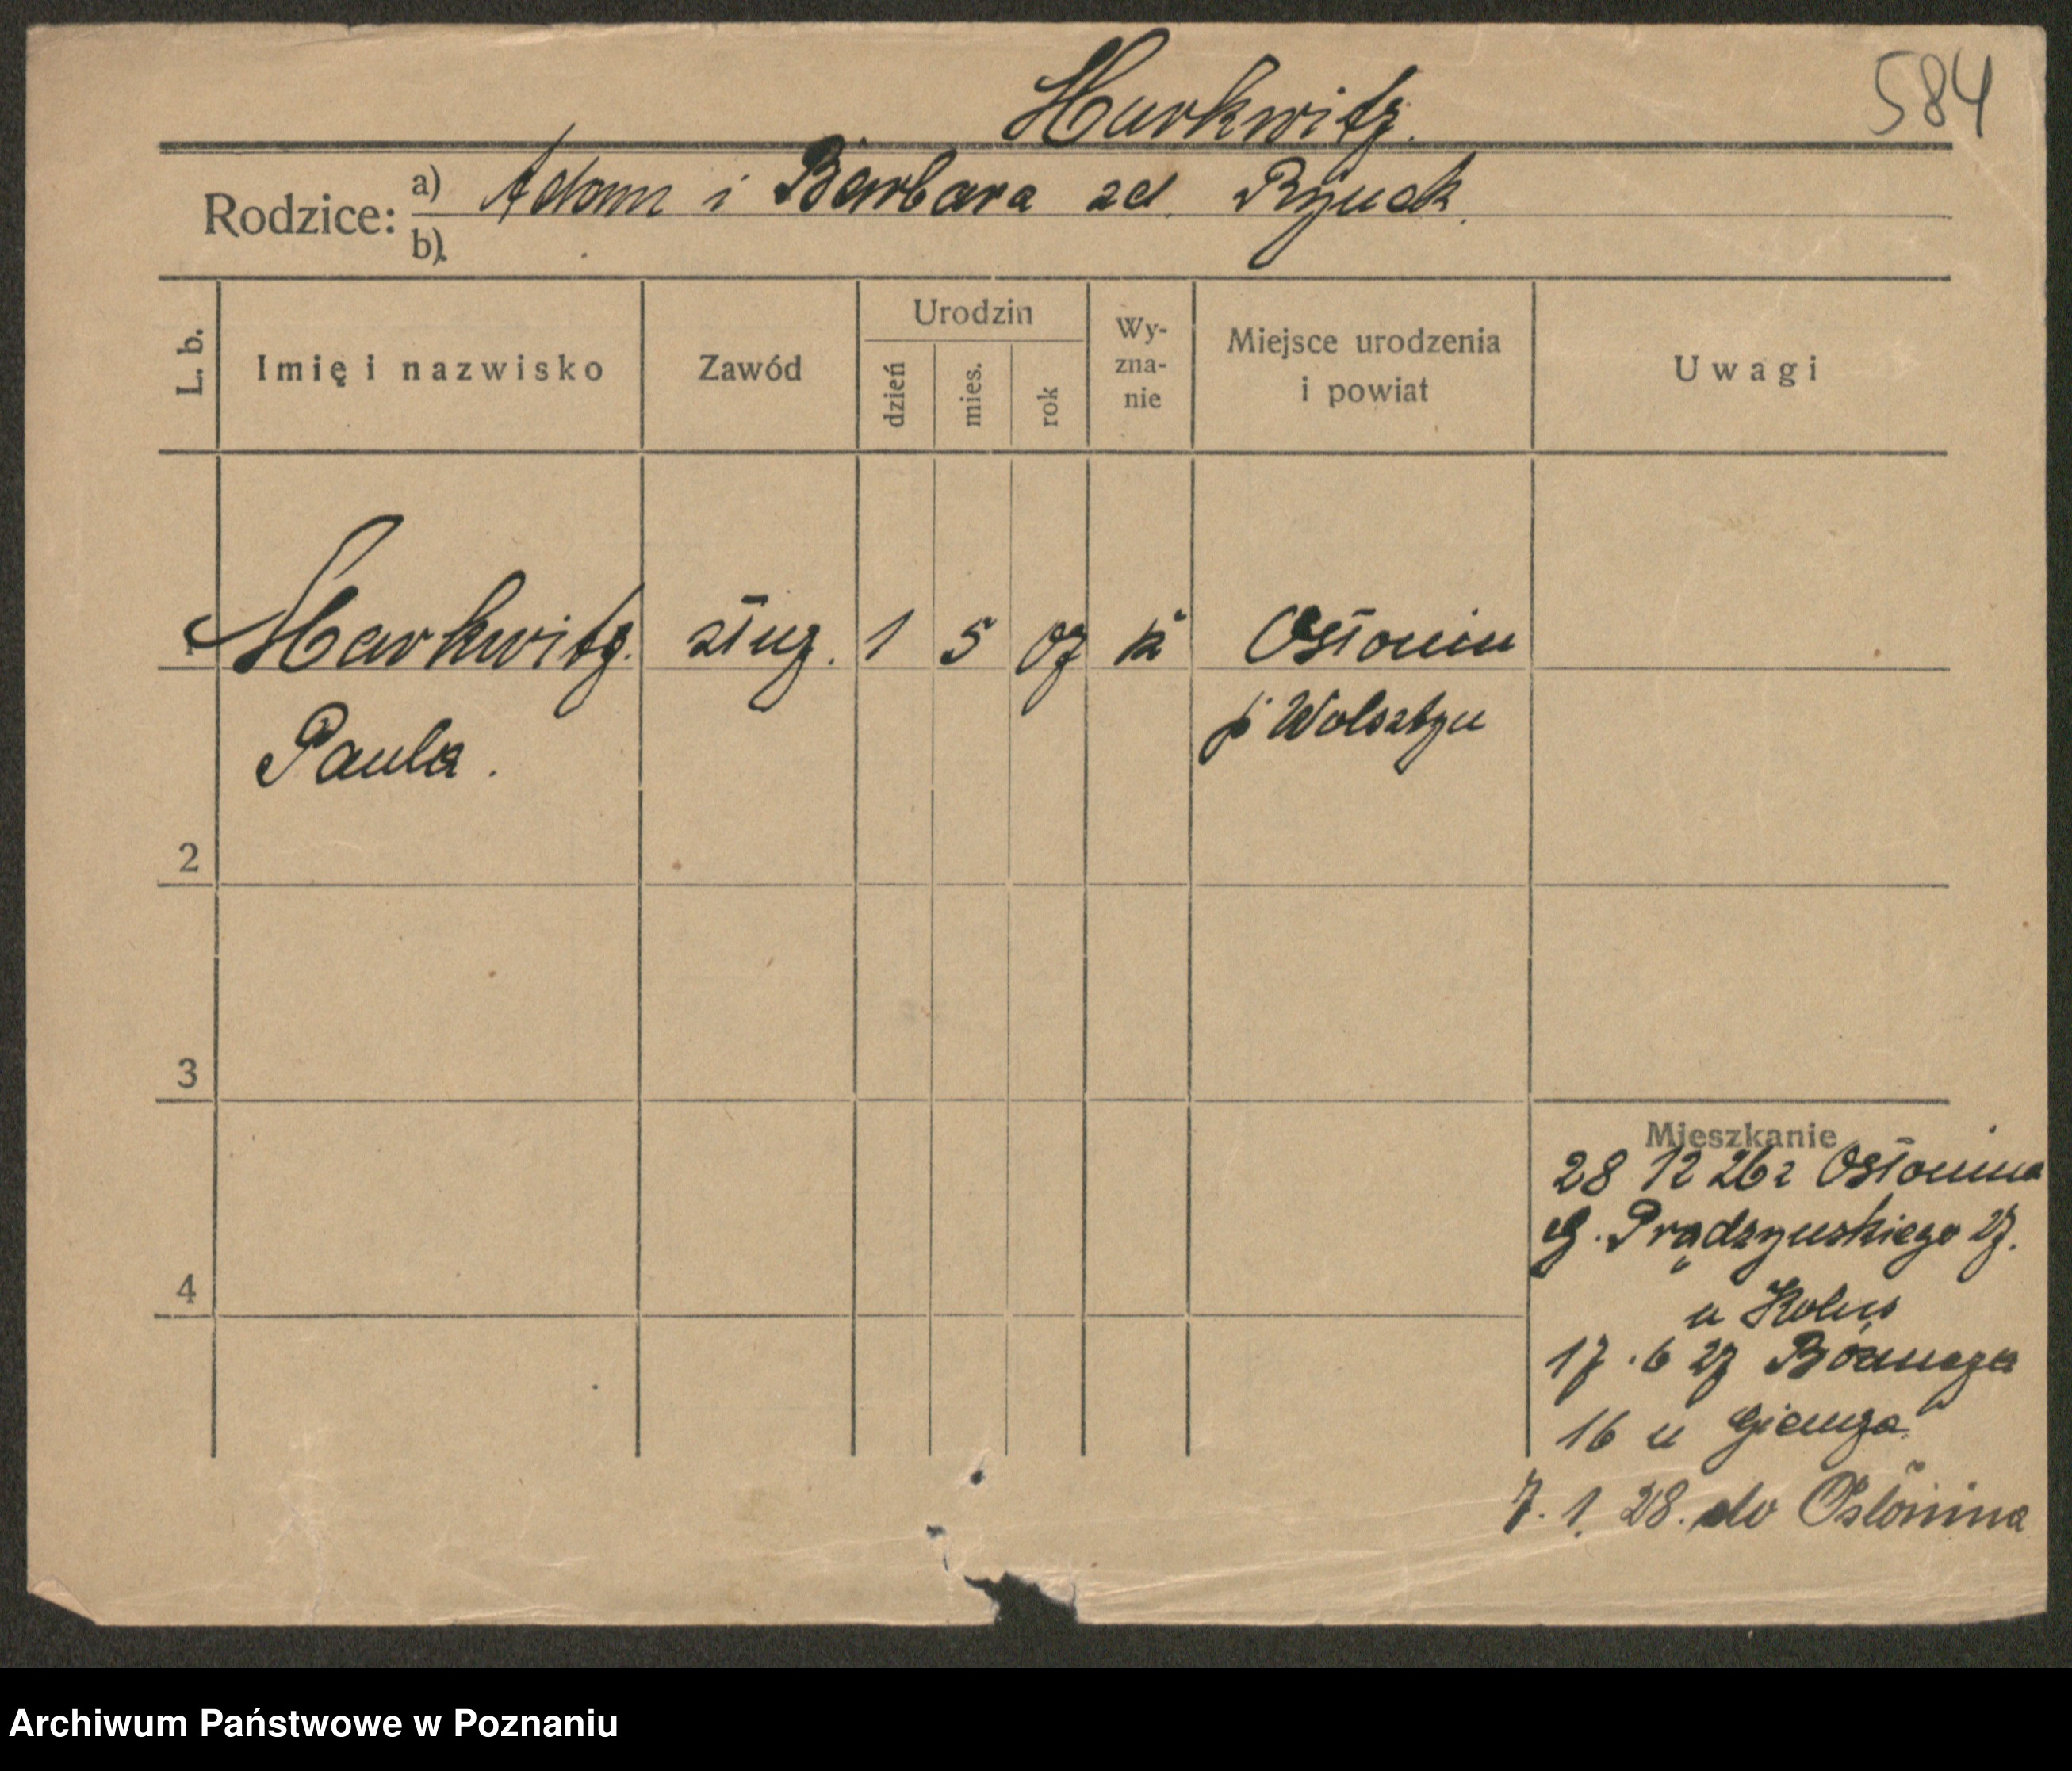 Markwitz. 584
Rodzice: a) Adam i Barbara zd.
b)
L. b. Imię i nazwisko Zawód Urodzin dzień mies. rok Wyznanie Miejsce urodzenia i powiat Uwagi
1 Markwitz. służ. 1 5 07 k Osłonin
Paula. p Wolsztyn
2
3
4
Mieszkanie
28 12 26 z Osłonina
G. Prądzyńskiego 27.
u
17.6 27
16 u
7. 1. 28. do Osłonina
Archiwum Państwowe w Poznaniu